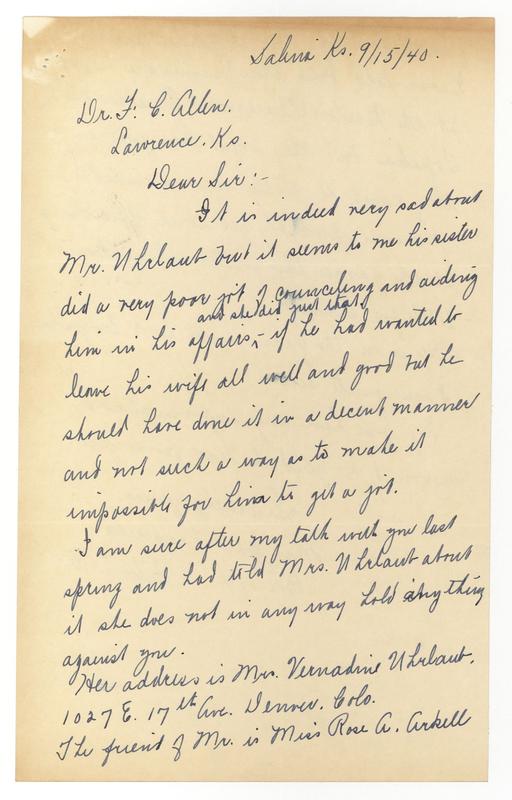 Salina Ks. 9/15/40.
Dr. F. C. Allen.
Lawrence. Ks.
Dear Sir:-
It is indeed very sad about
Mr. Uhrlaub but it seems to me his sister
did a very poor job of counceling and aiding
and she did just that,
him in his affairs,- if he had wanted to
leave his wife all well and good but he
should have done it in a decent manner
and not such a way as to make it
impossible for him to get a job.
I am sure after my talk with you last
spring and had told Mrs. Uhrlaub about
it she does not in any way hold anything
against you.
Her address is Mrs. Vernadine Uhrlaub.
1027 E. 17th Ave. Denver. Colo.
The friend of Mr. is Miss Rose A. Arkell